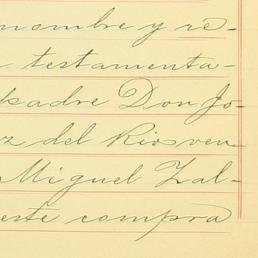 nombre y re-
testamenta-
padre Don Jo-
z del Rio ven-
Miguel Zal-
este compra